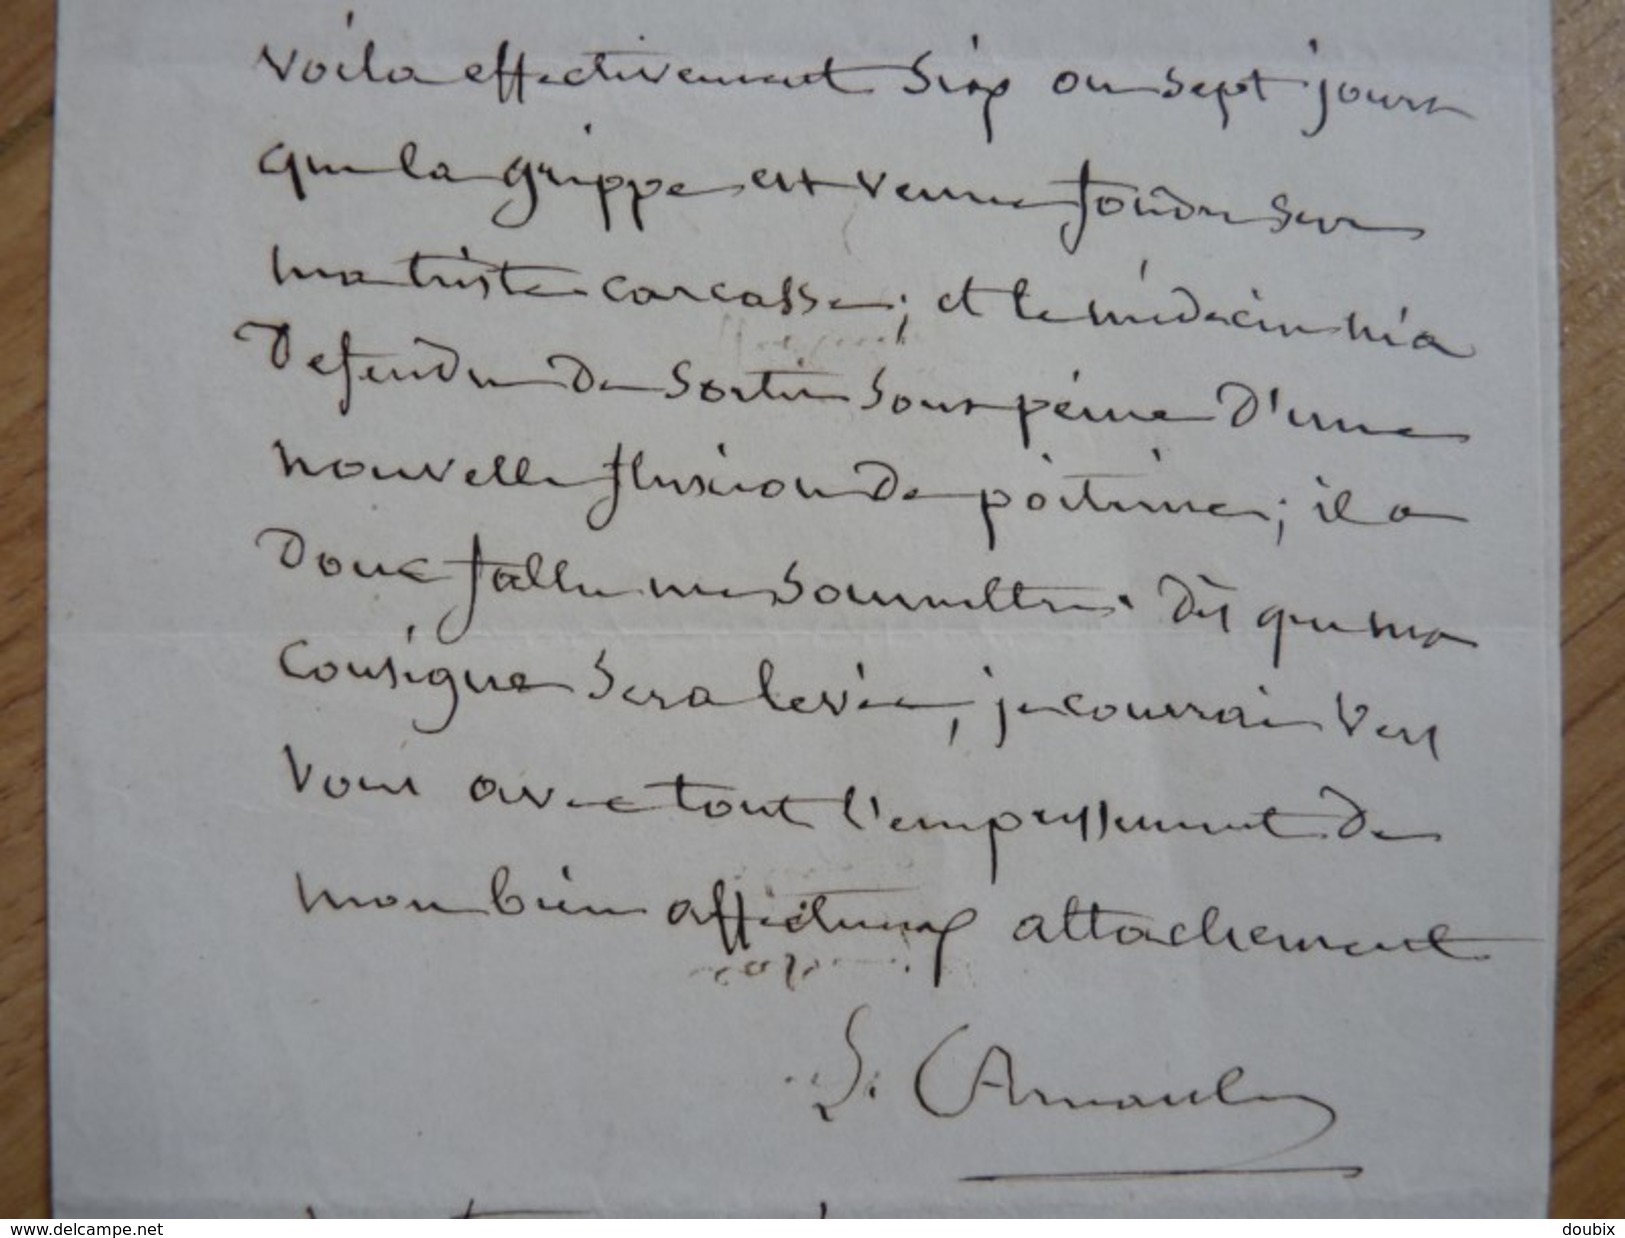 Voila effectivement Six ou sept jours
que la grippe est venue fondre sur
ma triste carcasse; et le médecin m'a
Defendu de sortir sous peine d'une
nouvelle fluxion de poitrine; il a
Donc fallu me soumettre. Dès que ma
Consigne sera levée, je courrai vers
vous avec tout l'empressement de
mon bien affectueux attachement
Arnault
www.delcampe.net
doubix